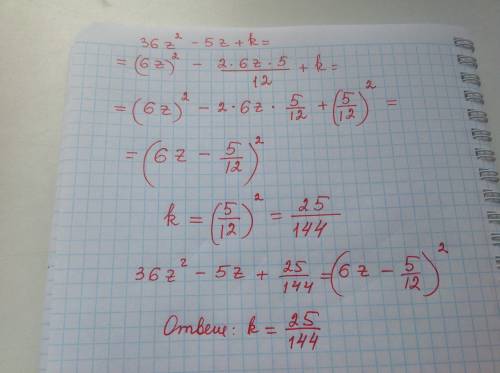 36z² - 5z + k =
= (6z)² - \frac{2·6z·5}{12} + k =
= (6z)² - 2·6z·\frac{5}{12} + (\frac{5}{12})² =
= (6z - \frac{5}{12})²
k = (\frac{5}{12})² = \frac{25}{144}
36z² - 5z + \frac{25}{144} = (6z - \frac{5}{12})²
Ответ: k = \frac{25}{144}